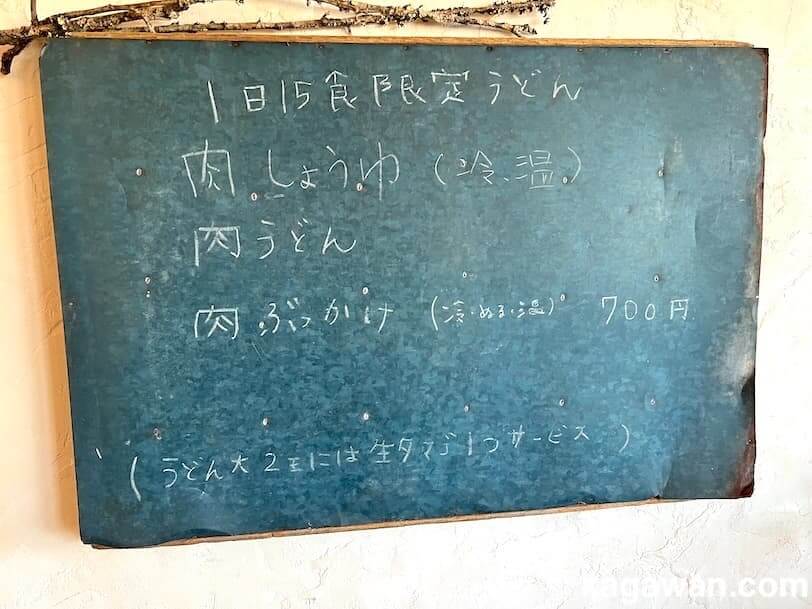 1日15食限定うどん
肉しょうゆ(冷、温)
肉うどん
肉ぶっかけ (冷・ぬる・温) 700円
(うどん大2玉には生タマゴ1つサービス)
kagawan.com